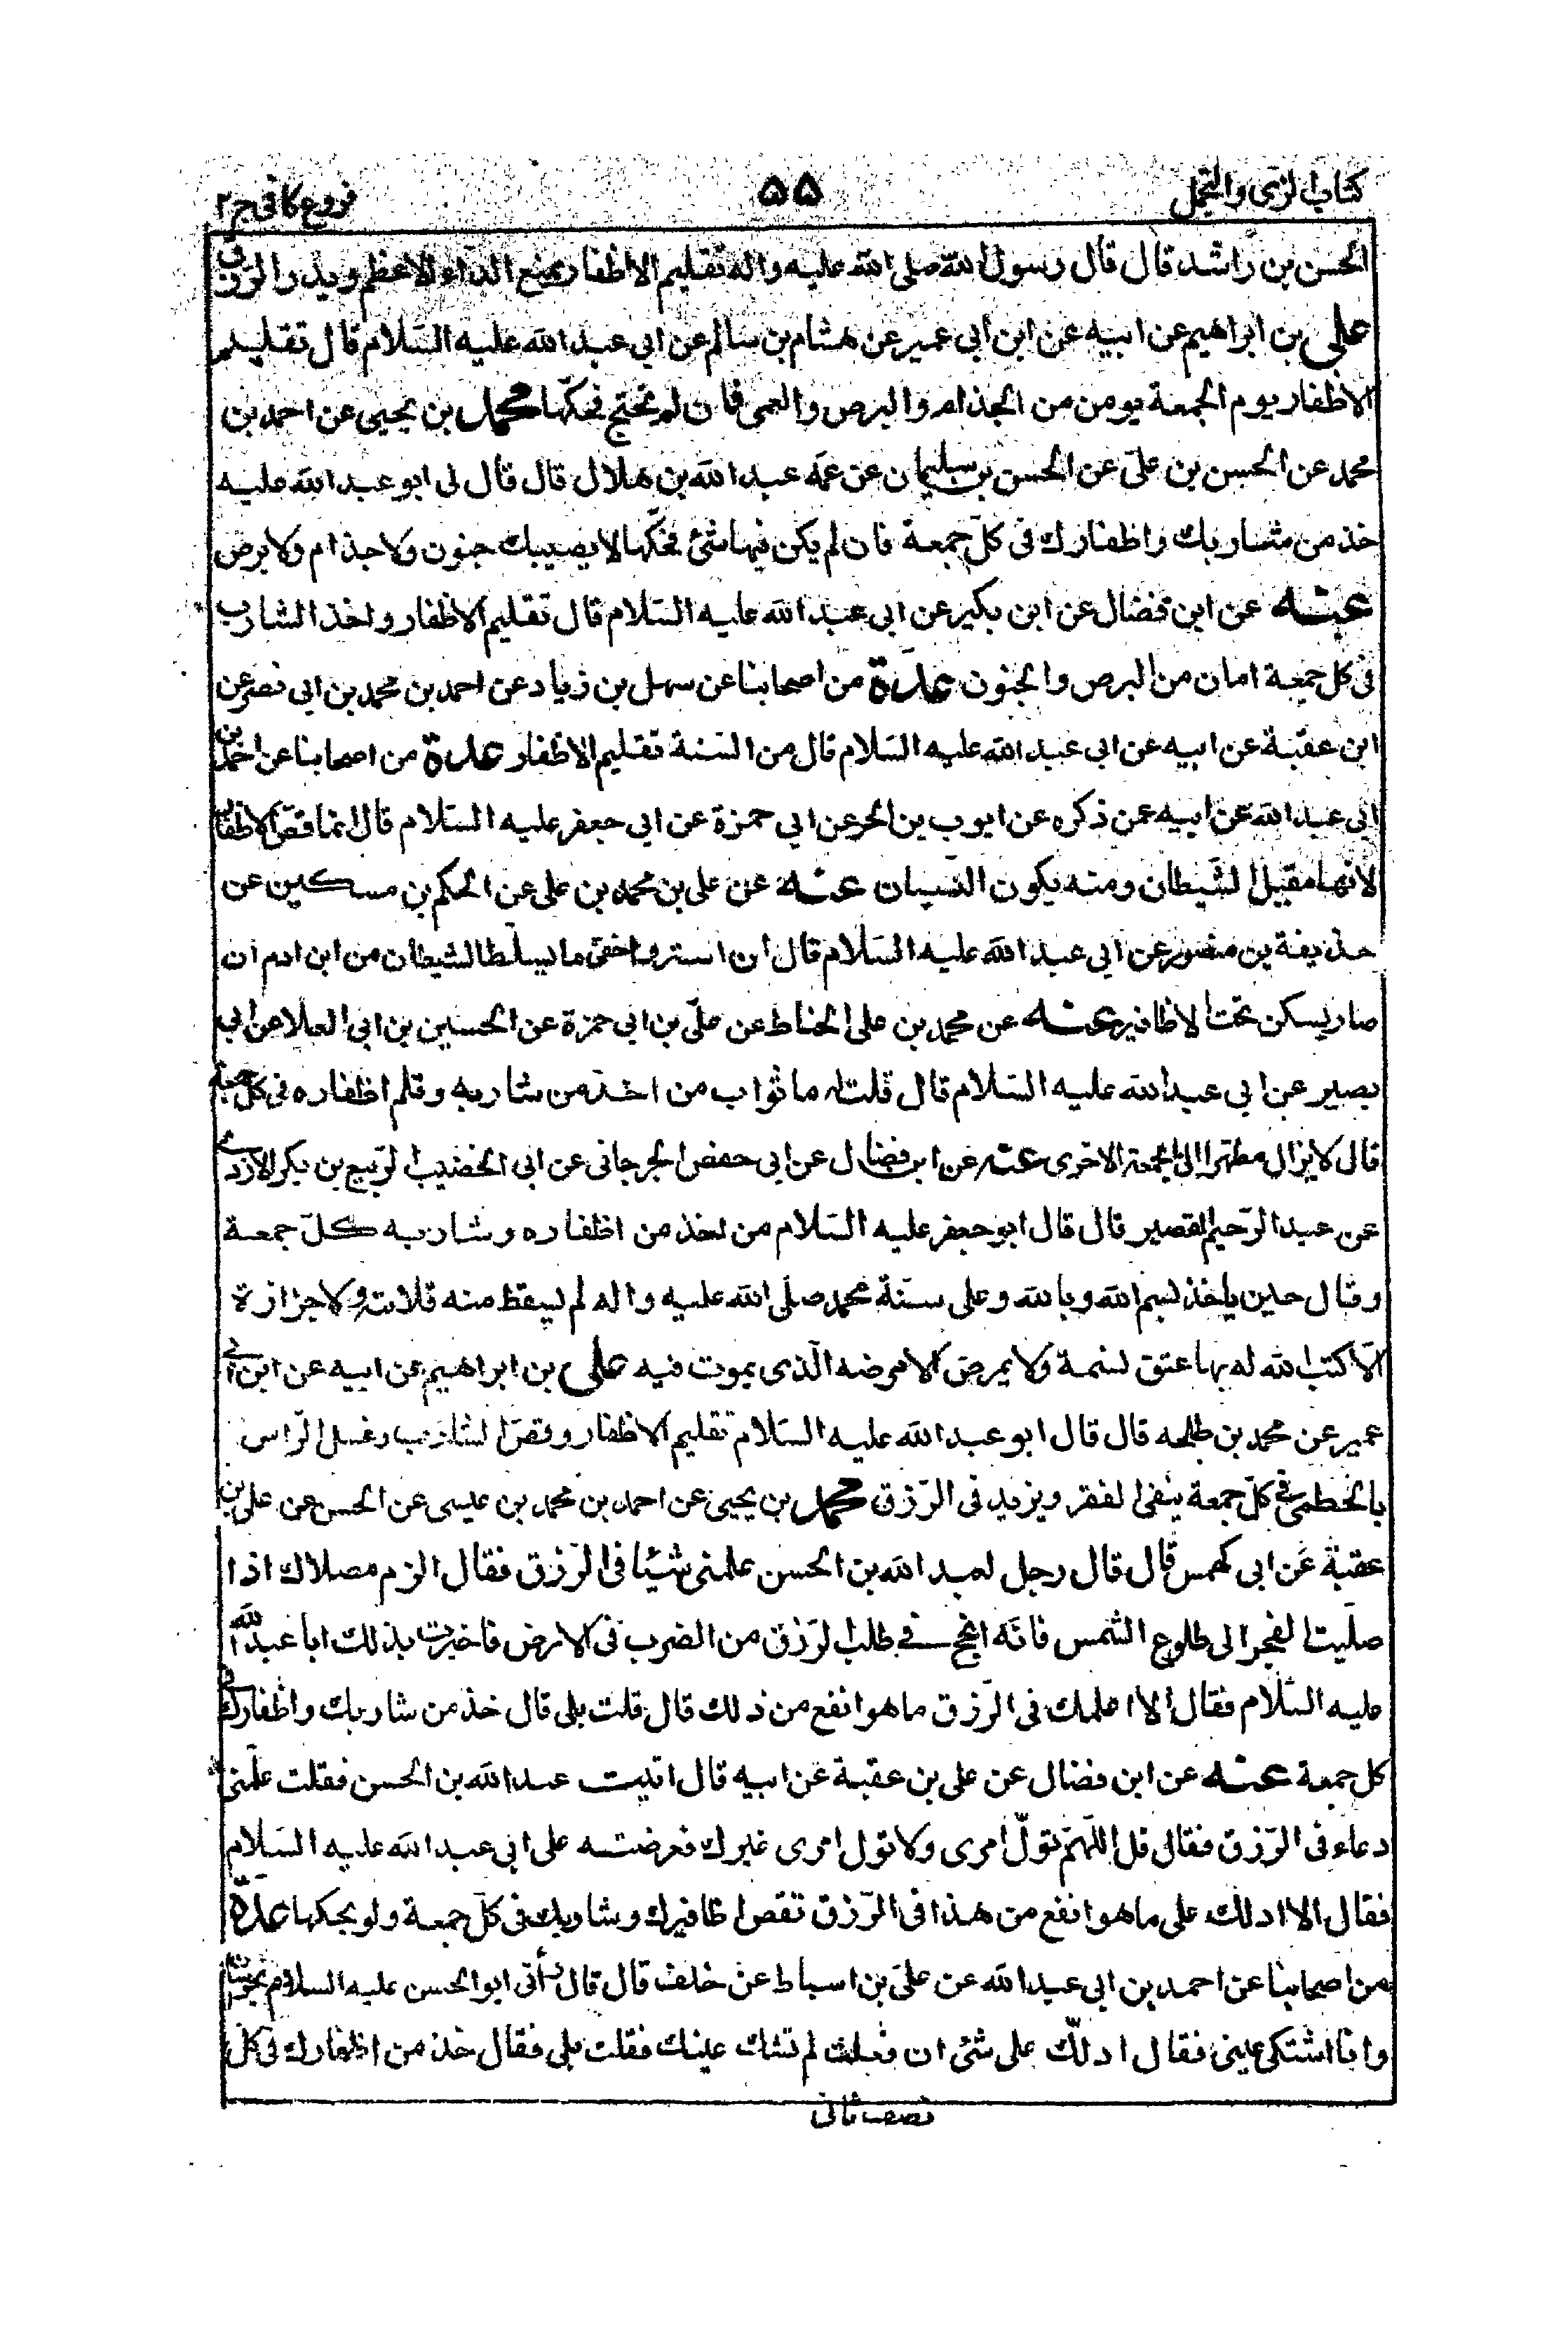 كتاب الزى والتجمل
۵۵
فروع كافى ج ۲
الحسن بن راشد قال قال رسول الله صلى الله عليه واله تقليم الاظفار يمنع الداء الاعظم ويدر الرزق
على بن ابراهيم عن ابيه عن ابن ابى عمير عن هشام بن سالم عن ابى عبد الله عليه السلام قال تقليم
الاظفار يوم الجمعة يومن من الجذام والبرص والعمى فان لم تحتج فحكها محمد بن يحيى عن احمد بن
محمد عن الحسن بن على عن الحسن بن سليمان عن عمه عبد الله بن هلال قال قال لى ابو عبد الله عليه
خذ من شاربك واظفارك فى كل جمعة فان لم يكن فيها شئ فحكها لا يصيبك جنون ولا جذام ولا برص
عنه عن ابن فضال عن ابن بكير عن ابى عبد الله عليه السلام قال تقليم الاظفار واخذ الشارب
فى كل جمعة امان من البرص والجنون عدة من اصحابنا عن سهل بن زياد عن احمد بن محمد بن ابى نصر عن
ابن عقبة عن ابيه عن ابى عبد الله عليه السلام قال من السنة تقليم الاظفار عدة من اصحابنا عن احمد بن
ابى عبد الله عن ابيه عمن ذكره عن ايوب بن الحر عن ابى حمزة عن ابى جعفر عليه السلام قال انما قص الاظفار
لانها مقيل الشيطان ومنه يكون النسيان عنه عن على بن محمد بن على عن الحكم بن مسكين عن
حذيفة بن منصور عن ابى عبد الله عليه السلام قال ان استر واخفى ما يسلط الشيطان من ابن ادم ان
صار يسكن تحت الاظافير عنه عن محمد بن على الحناط عن على بن ابى حمزة عن الحسين بن ابى العلا عن ابى
بصير عن ابى عبد الله عليه السلام قال قلت له ما ثواب من اخذ من شاربه وقلم اظفاره فى كل جمعة
قال لا يزال مطهرا الى الجمعة الاخرى عنه عن ابن فضال عن ابى حفص الجرجانى عن ابى الخضيب الربيع بن بكر الازدى
عن عبد الرحيم القصير قال قال ابو جعفر عليه السلام من اخذ من اظفاره وشاربه كل جمعة
وقال حين ياخذ بسم الله وبالله وعلى سنة محمد صلى الله عليه واله لم يسقط منه قلامة ولا جزازة
الا كتب الله له بها عتق نسمة ولا يمرض الا مرضه الذى يموت فيه على بن ابراهيم عن ابيه عن ابن ابى
عمير عن محمد بن طلحه قال قال ابو عبد الله عليه السلام تقليم الاظفار وقص الشارب وغسل الراس
بالخطمى فى كل جمعة ينفى الفقر ويزيد فى الرزق محمد بن يحيى عن احمد بن محمد بن عيسى عن الحسن عن على بن
عقبة عن ابى كهمس قال قال رجل لعبد الله بن الحسن علمنى شيئا فى الرزق فقال الزم مصلاك اذا
صليت الفجر الى طلوع الشمس فانه انجح فى طلب الرزق من الضرب فى الارض فاخبرت بذلك ابا عبد الله
عليه السلام فقال الا اعلمك فى الرزق ما هو انفع من ذلك قال قلت بلى قال خذ من شاربك واظفارك فى
كل جمعة عنه عن ابن فضال عن على بن عقبة عن ابيه قال اتيت عبد الله بن الحسن فقلت علمنى
دعاء فى الرزق فقال قل اللهم تول امرى ولا تول امرى غيرك فعرضته على ابى عبد الله عليه السلام
فقال الا ادلك على ما هو انفع من هذا فى الرزق تقص اظافيرك وشاربك فى كل جمعة ولو بحكها عدة
من اصحابنا عن احمد بن ابى عبد الله عن على بن اسباط عن خلف قال قال رأنى ابو الحسن عليه السلام بخراسان
وانا اشتكى عينى فقال ادلك على شئ ان فعلت لم تشك عينك فقلت بلى فقال خذ من اظفارك فى كل
نصف ثانى